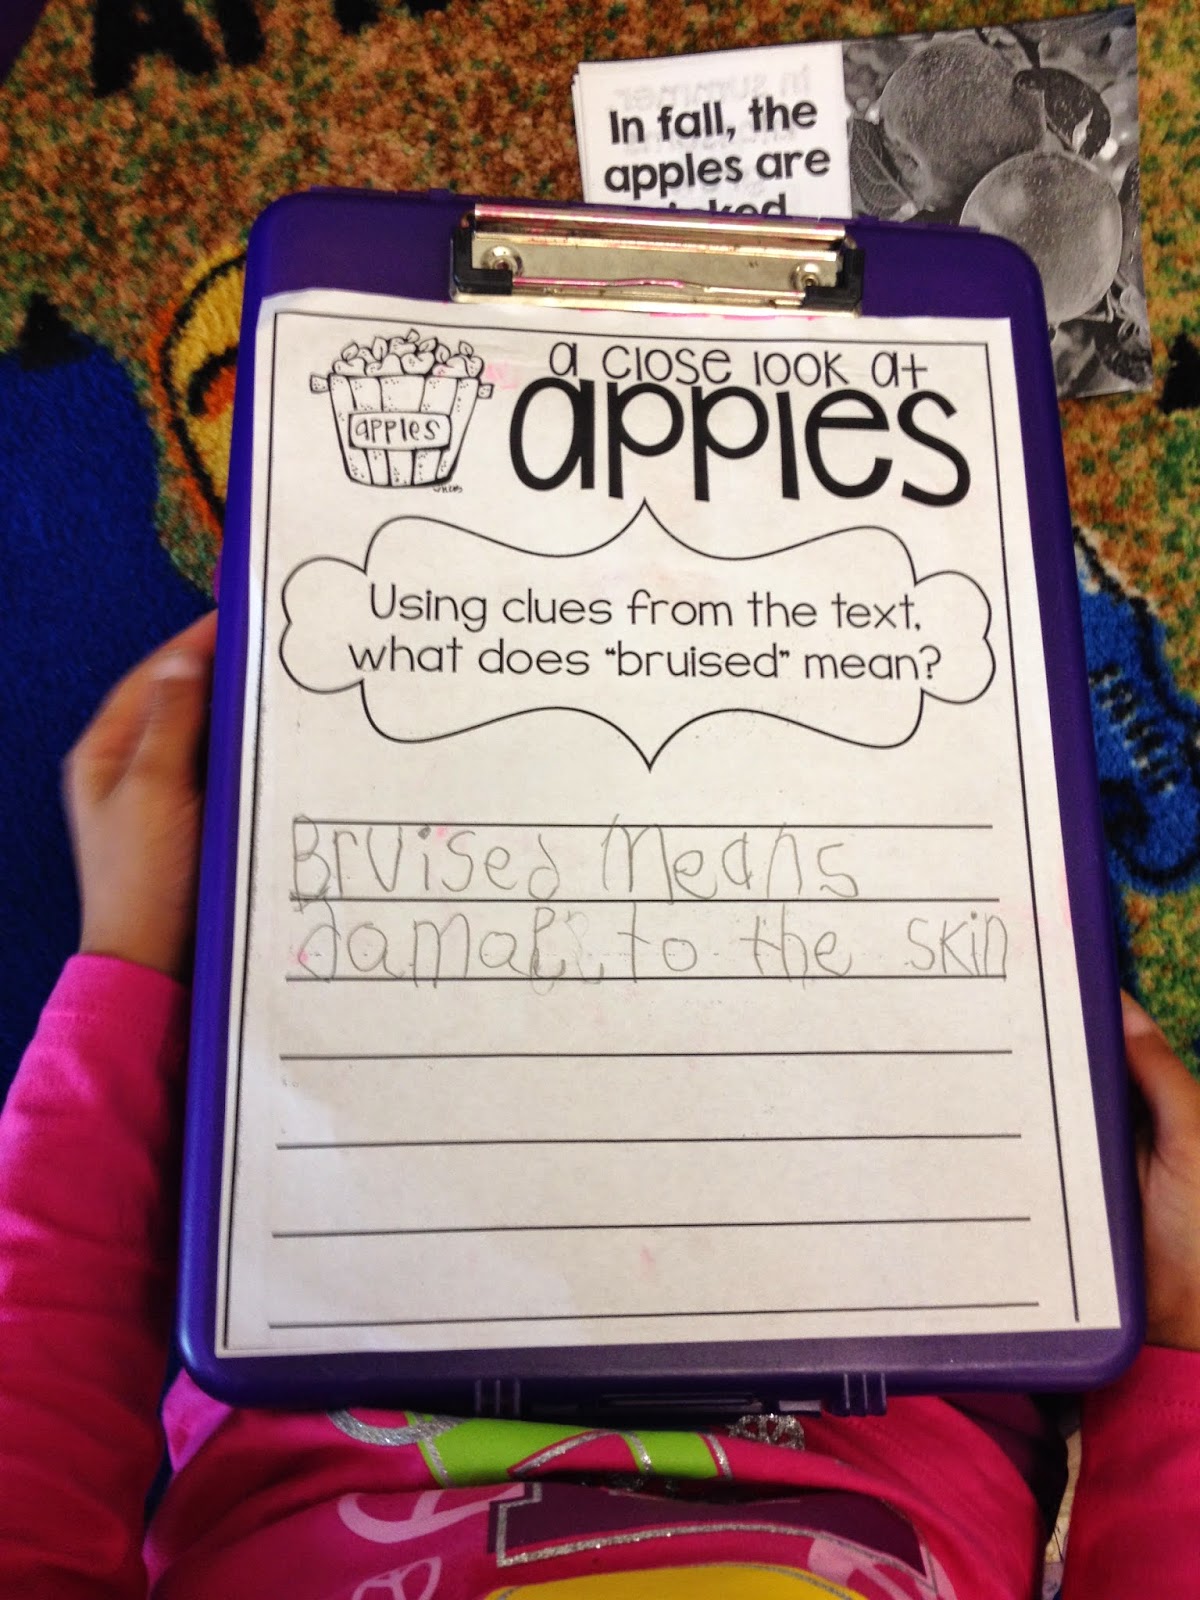 In fall, the
apples are
a close look at
apples
apples
Using clues from the text,
what does "bruised" mean?
Bruised Means
to the skin